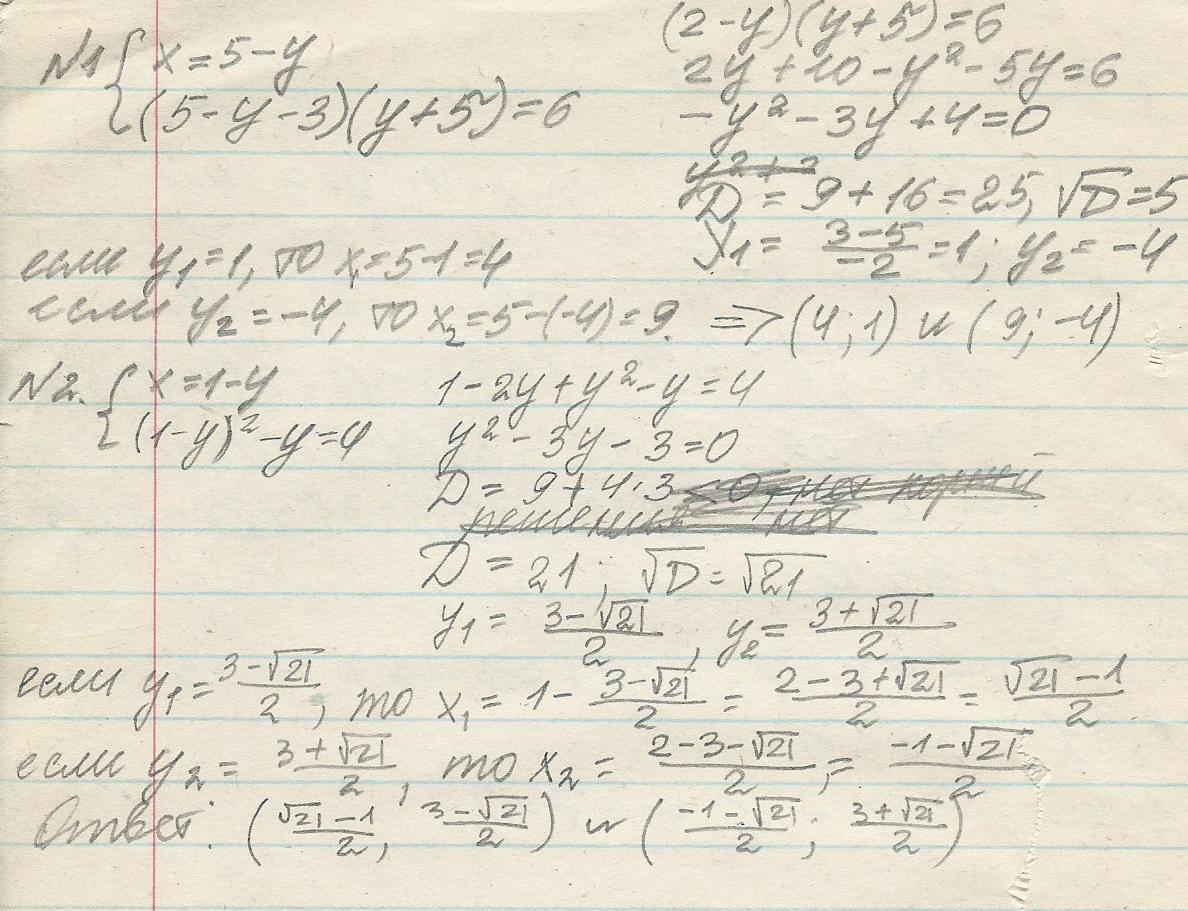 N1 { x = 5 - y
(5 - y - 3)(y + 5) = 6
(2 - y)(y + 5) = 6
2y + 10 - y² - 5y = 6
-y² - 3y + 4 = 0
y² + 3
D = 9 + 16 = 25, √D = 5
y₁ = (3 - 5)/(-2) = 1; y₂ = -4
если y₁ = 1, то x₁ = 5 - 1 = 4
если y₂ = -4, то x₂ = 5 - (-4) = 9. => (4; 1) и (9; -4)
N2. { x = 1 - y
(1 - y)² - y = 4
1 - 2y + y² - y = 4
y² - 3y - 3 = 0
D = 9 + 4·3 < 0, нет корней
решений нет
D = 21; √D = √21
y₁ = (3 - √21)/2, y₂ = (3 + √21)/2
если y₁ = (3 - √21)/2, то x₁ = 1 - (3 - √21)/2 = (2 - 3 + √21)/2 = (√21 - 1)/2
если y₂ = (3 + √21)/2, то x₂ = (2 - 3 - √21)/2 = (-1 - √21)/2
Ответ: ((√21 - 1)/2, (3 - √21)/2) и ((-1 - √21)/2; (3 + √21)/2)